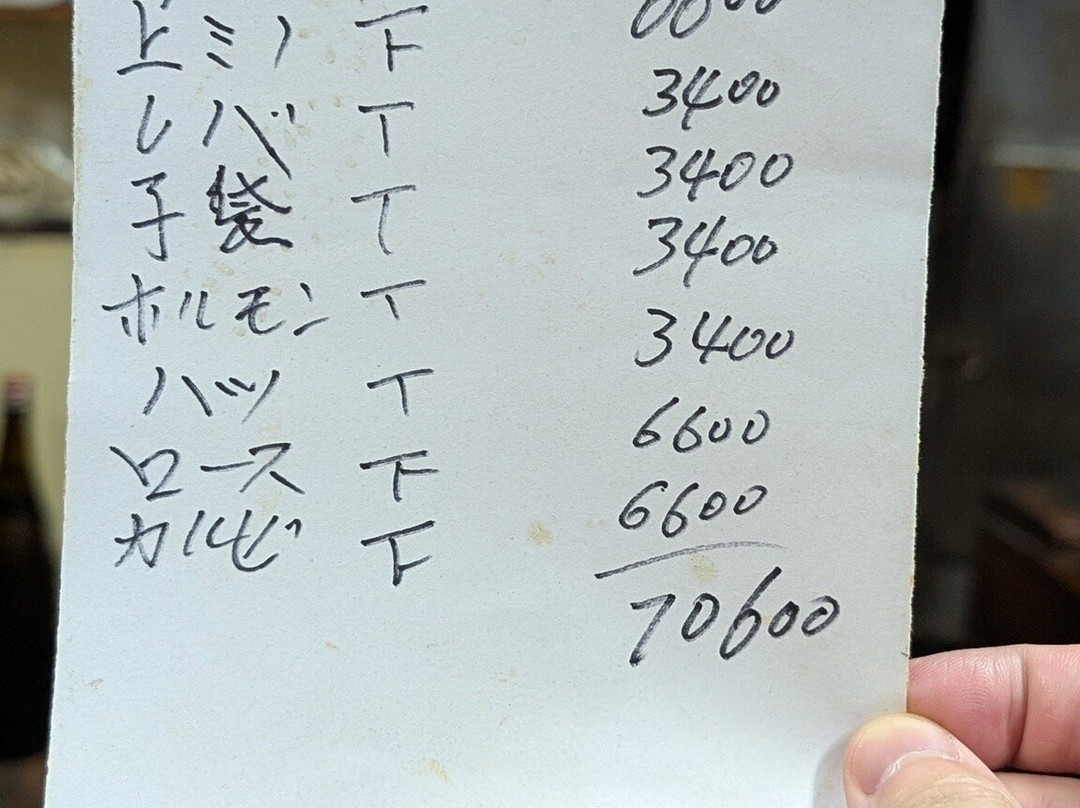 上ミノ 下
レバ 丅 3400
子袋 丅 3400
ホルモン 丅 3400
ハツ 丅 3400
ロース 下 6600
カルビ 下 6600
70600